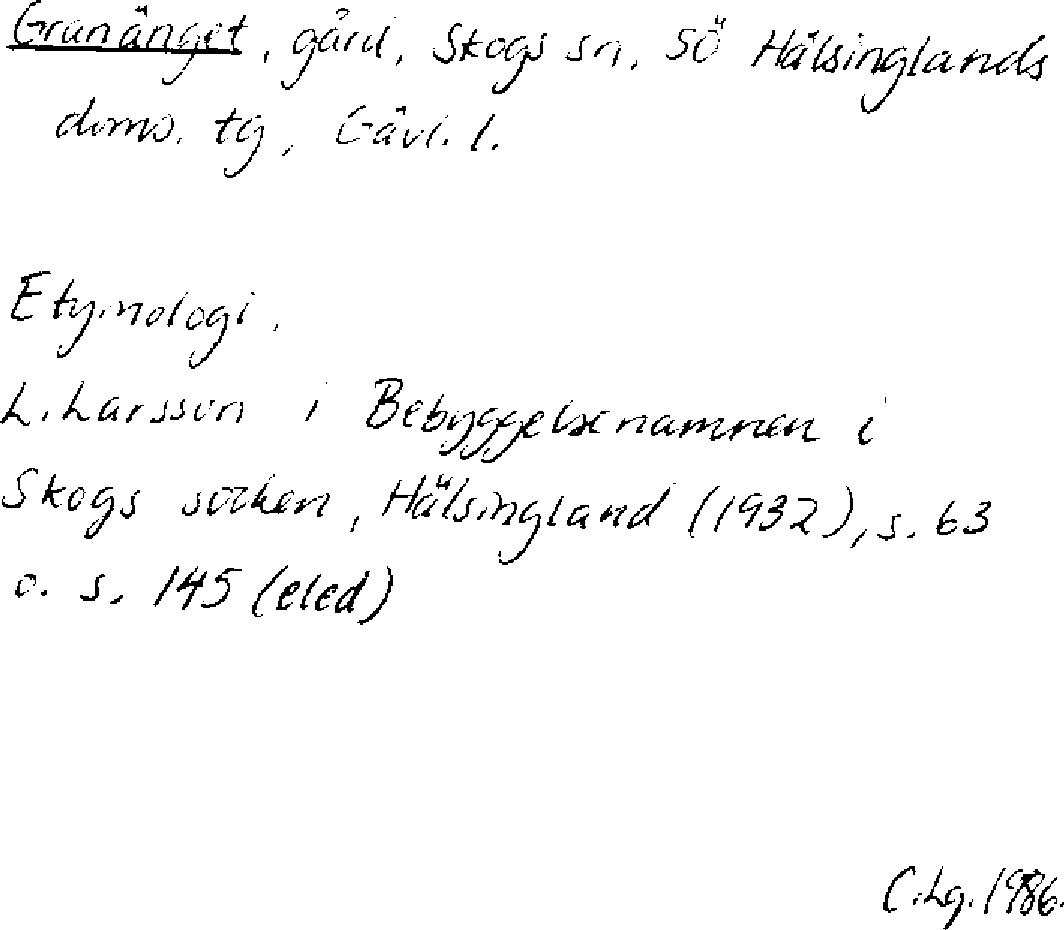 Granänget, gård, Skogs sn, Sö Hälsinglands
doms. tg, Gävl. l.
Etymologi.
L. Larsson i Bebyggelsenamnen i
Skogs socken, Hälsingland (1932), s. 63
o. s. 145 (eled)
C.Lg. 1986.